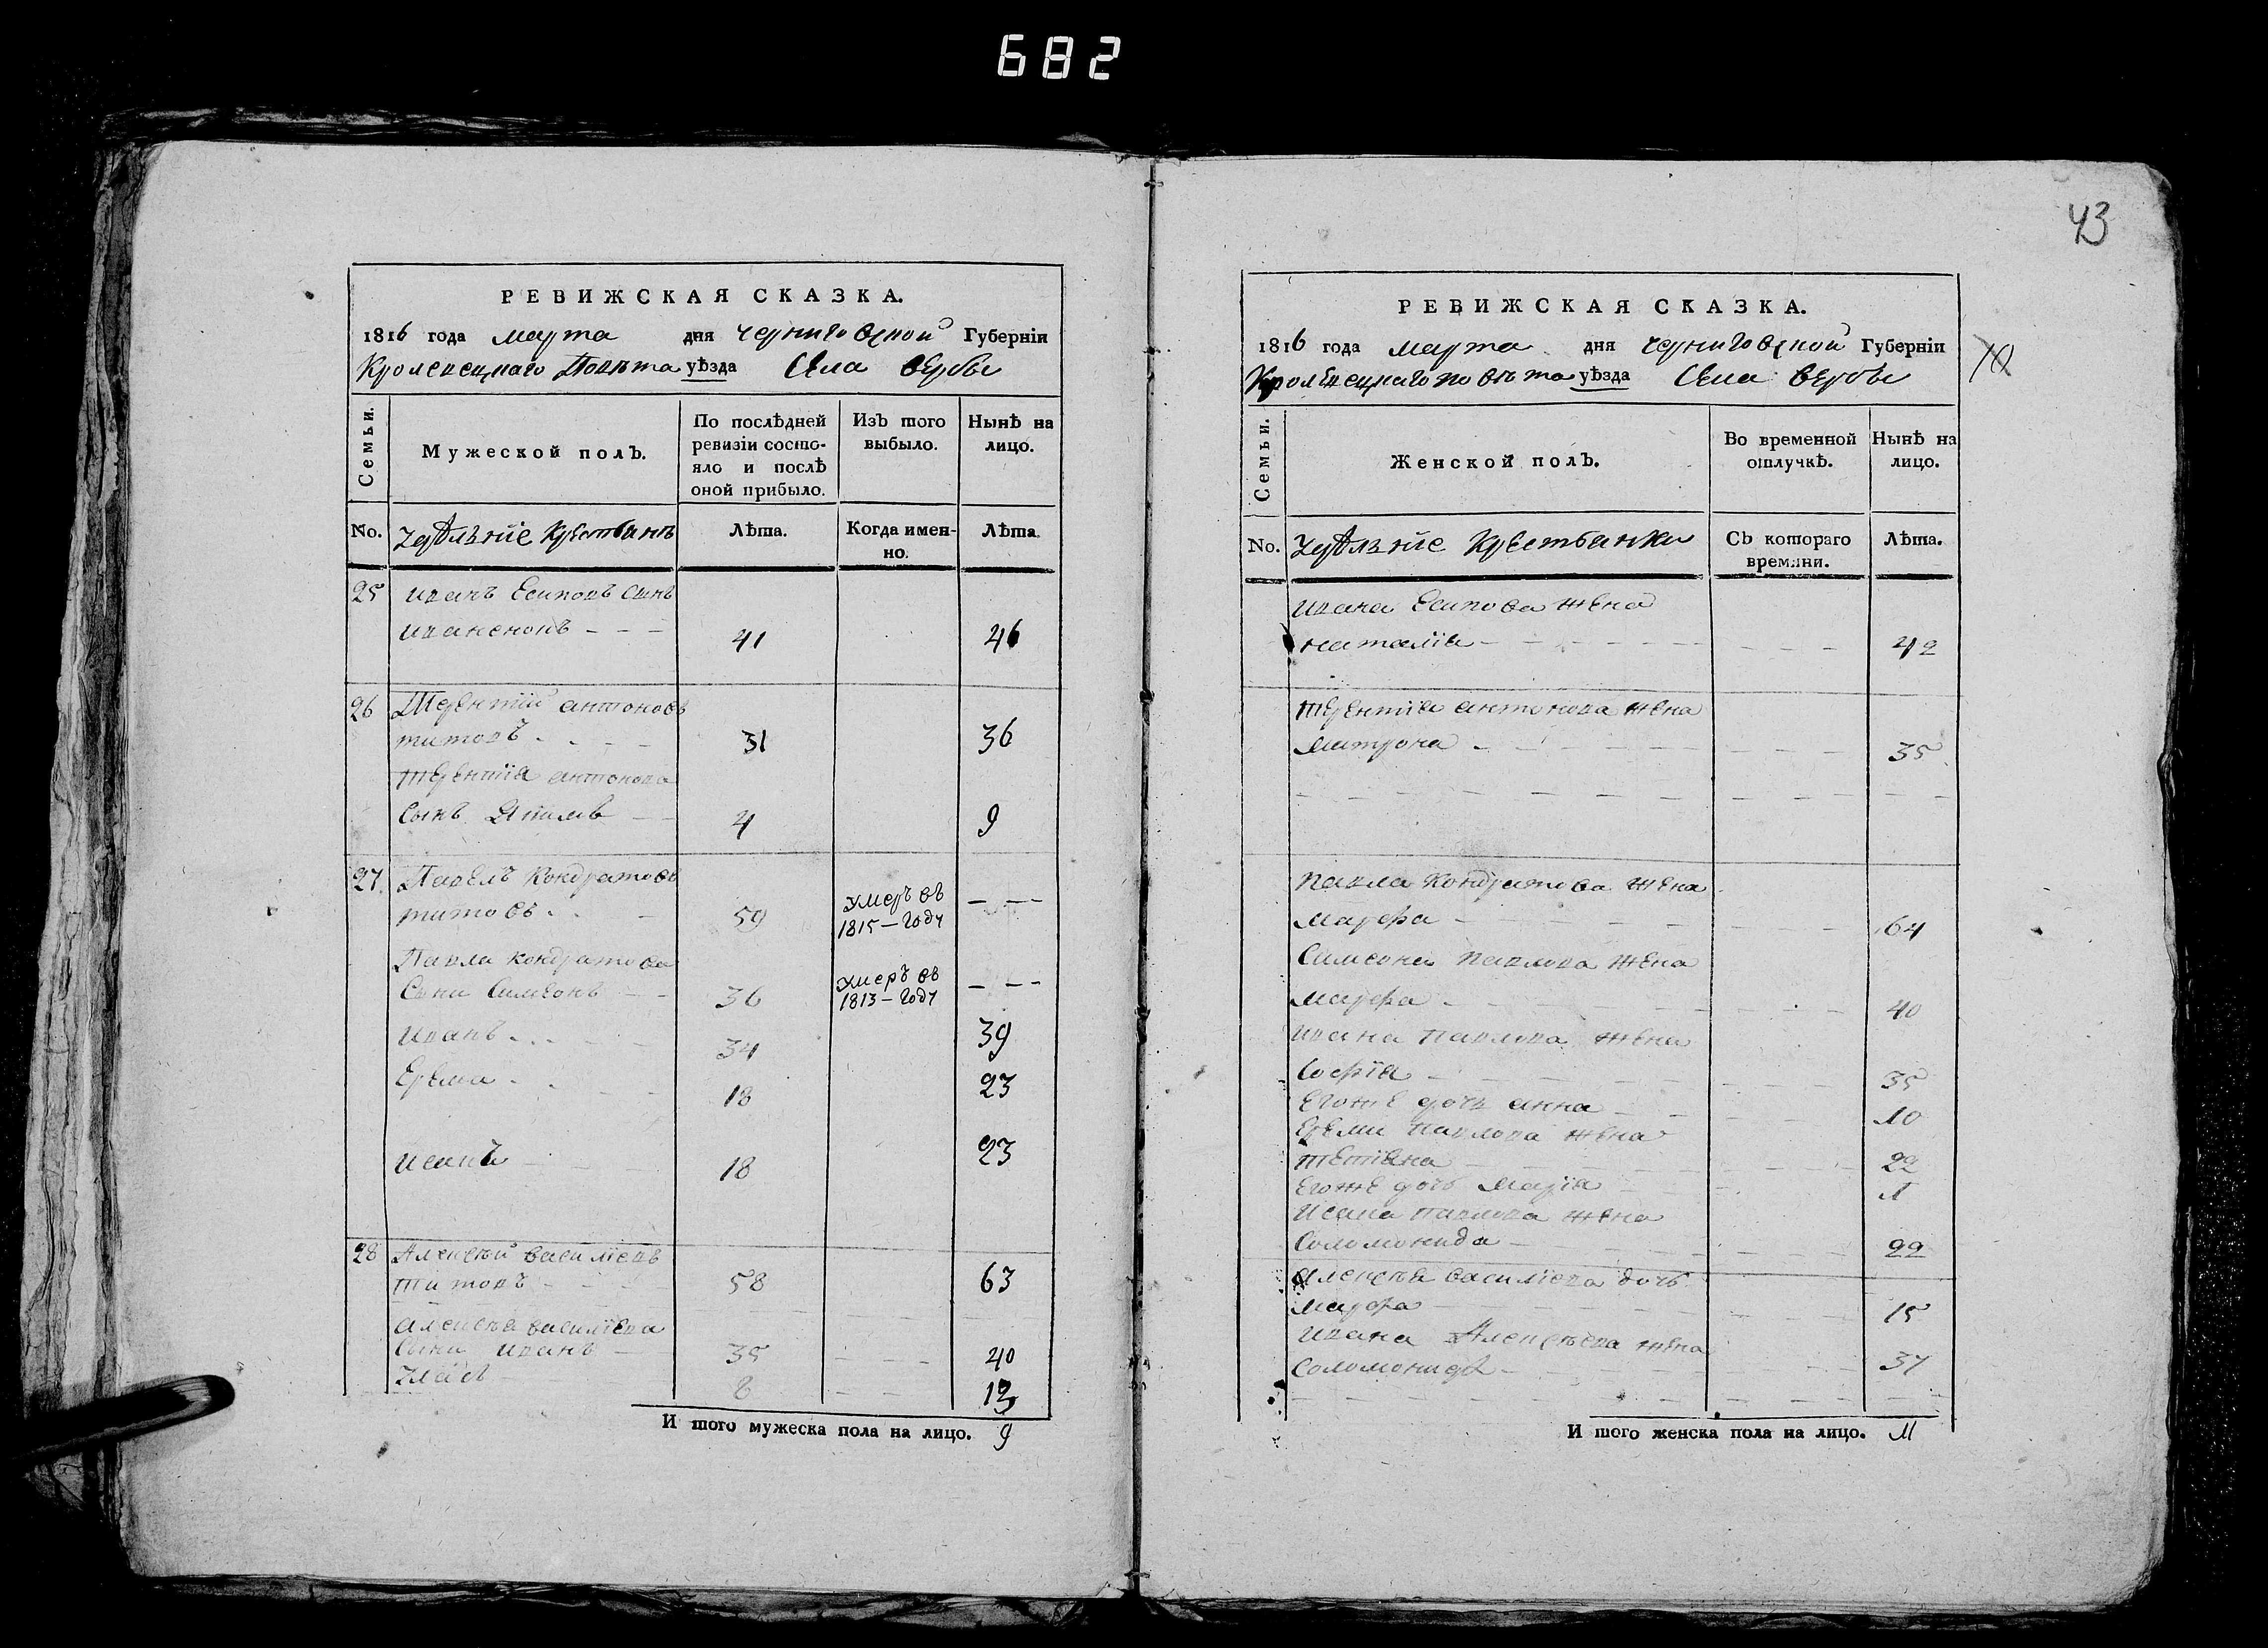 682
РЕВИЖСКАЯ СКАЗКА.
1816 года марта дня черниговской Губерніи
Кролевецкаго Повѣта уѣзда Села вербы
Семьи.
Мужеской полъ.
По послѣдней ревизіи состояло и послѣ оной прибыло.
Изъ того выбыло.
Нынѣ на лицо.
No. Удѣлніе Крестьянъ Лѣта. Когда именно. Лѣта.
25 иванъ Есиповъ сынъ
иваненокъ - - - 41 46
26 Терентій антоновъ
титовъ 31 36
Терентія антонова
Сынъ 4 9
27. Павелъ Кондратовъ
титовъ 59 умеръ въ 1815 - году - - -
Павла кондратова
Сыни Симеонъ 36 умеръ въ 1813 - году - - -
иванъ 34 39
Ерема 18 23
исакъ 18 23
28 Алексѣй василіевъ
титовъ 58 63
алексѣя василіева
Сыни иванъ 35 40
8 13
И того мужеска пола на лицо. 9
43
РЕВИЖСКАЯ СКАЗКА.
1816 года марта дня черниговской Губерніи
Кролевецкаго повѣта уѣзда Села вербы
Семьи.
Женской полъ.
Во временной отлучкѣ.
Нынѣ на лицо.
No. Удѣлніе Крестьянки Съ котораго времяни. Лѣта.
ивана Есипова жена
наталія 42
Терентія антонова жена
матрона 35
павла кондратова жена
марфа 64
Симеона павлова жена
марфа 40
ивана павлова жена
Софія 35
Егоже дочь анна 10
Ереми павлова жена
тетіяна 22
Егоже дочь марія 1
исака павлова жена
Соломонида 22
алексѣя василіева дочь
марфа 15
ивана Алексѣева жена
соломонида 37
И того женска пола на лицо. 11